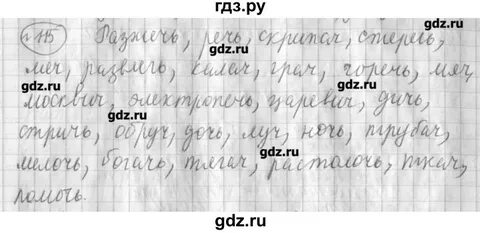 гдз.ру
№ 115 Разжечь, речь, скрипач, стеречь,
меч, развлечь, калач, грач, горечь, мяч,
москвич, электропечь, царевич, дичь,
стричь, обруч, дочь, луч, ночь, трубач,
мелочь, богач, тягач, растолочь, ткач,
помочь.
gdz.ru
gdz.ru
gdz.ru
gdz.ru
gdz.ru
gdz.ru
gdz.ru
gdz.ru